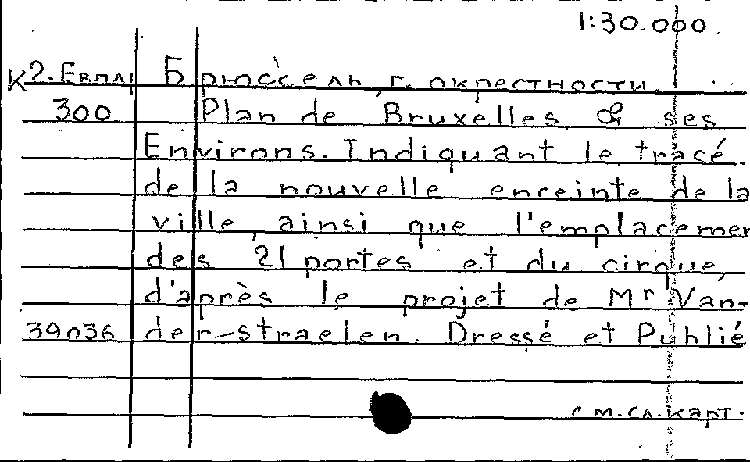 1:30.000
К 2. Евпл Брюссель, г. окрестности
300 Plan de Bruxelles & ses
Environs. Indiquant le tracé
de la nouvelle enceinte de la
ville, ainsi que l'emplacemen
des 21 portes et du cirque,
d'après le projet de Mr Van-
39036 der-straelen. Dressé et Publié
см.сл.карт.